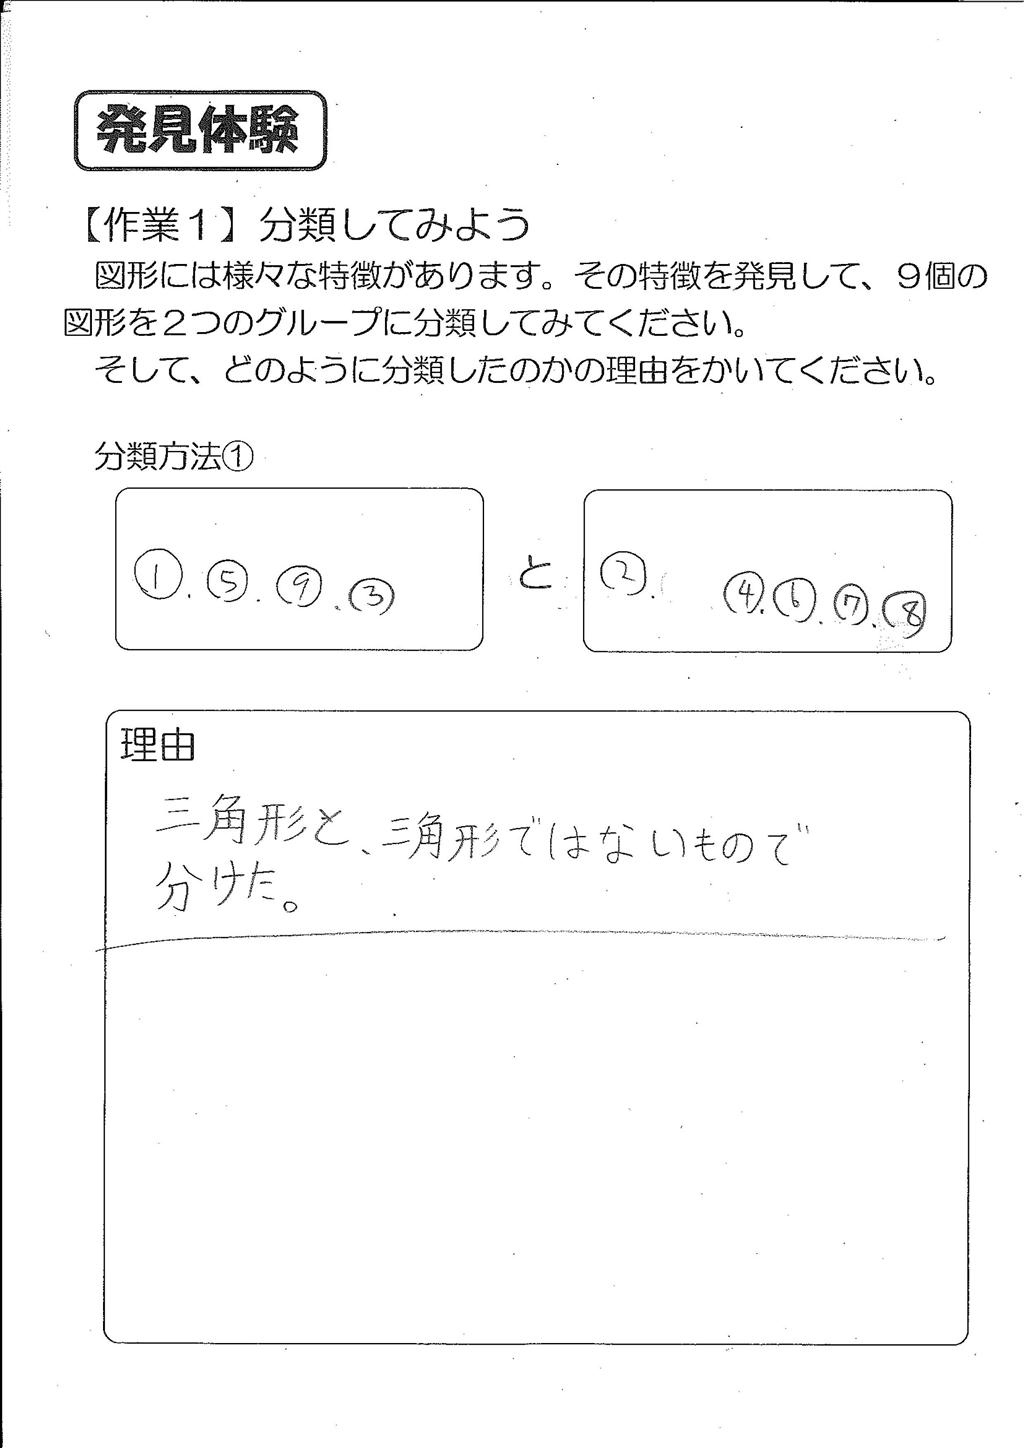 発見体験
【作業１】分類してみよう
図形には様々な特徴があります。その特徴を発見して、９個の
図形を２つのグループに分類してみてください。
そして、どのように分類したのかの理由をかいてください。
分類方法①
①.⑤.⑨.③ と ②.④.⑥.⑦.⑧
理由
三角形と、三角形ではないもので
分けた。